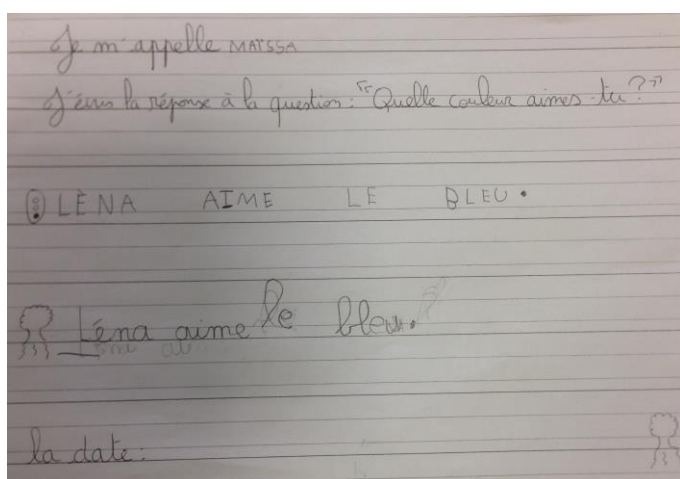 Je m'appelle MAÏSSA
J'écris la réponse à la question : "Quelle couleur aimes-tu ?"
LÉNA AIME LE BLEU.
Léna aime le bleu.
la date :